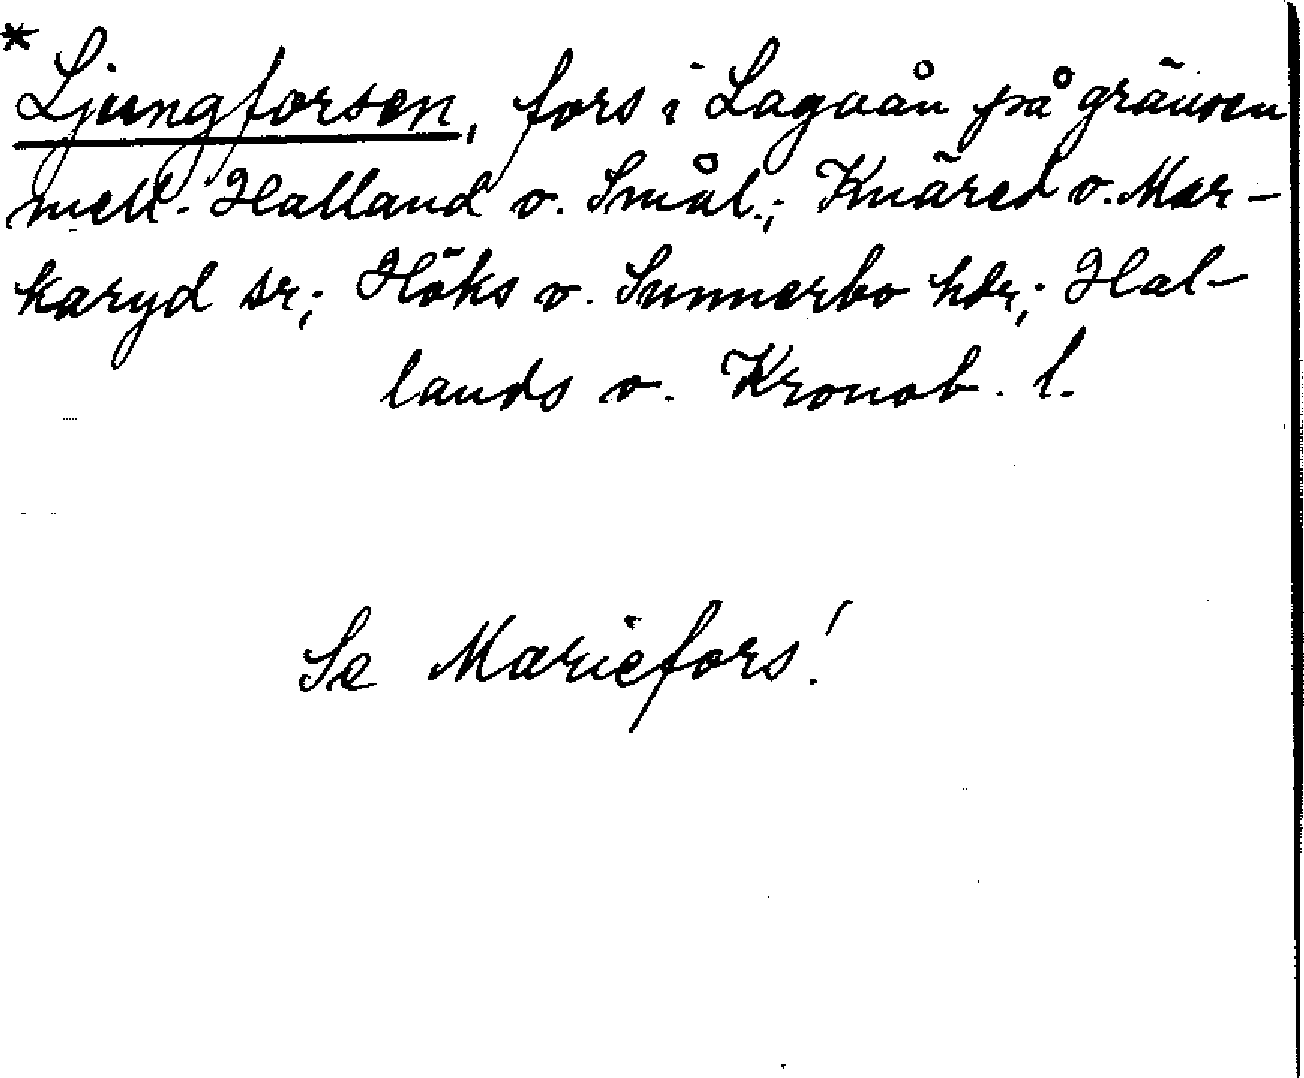 * Ljungforsen, fors i Lagaån på gränsen
mell. Halland o. Smål.; Knäred o. Mar-
karyd sr; Höks o. Sunnerbo hdr; Hal-
lands o. Kronob. l.
Se Mariefors!